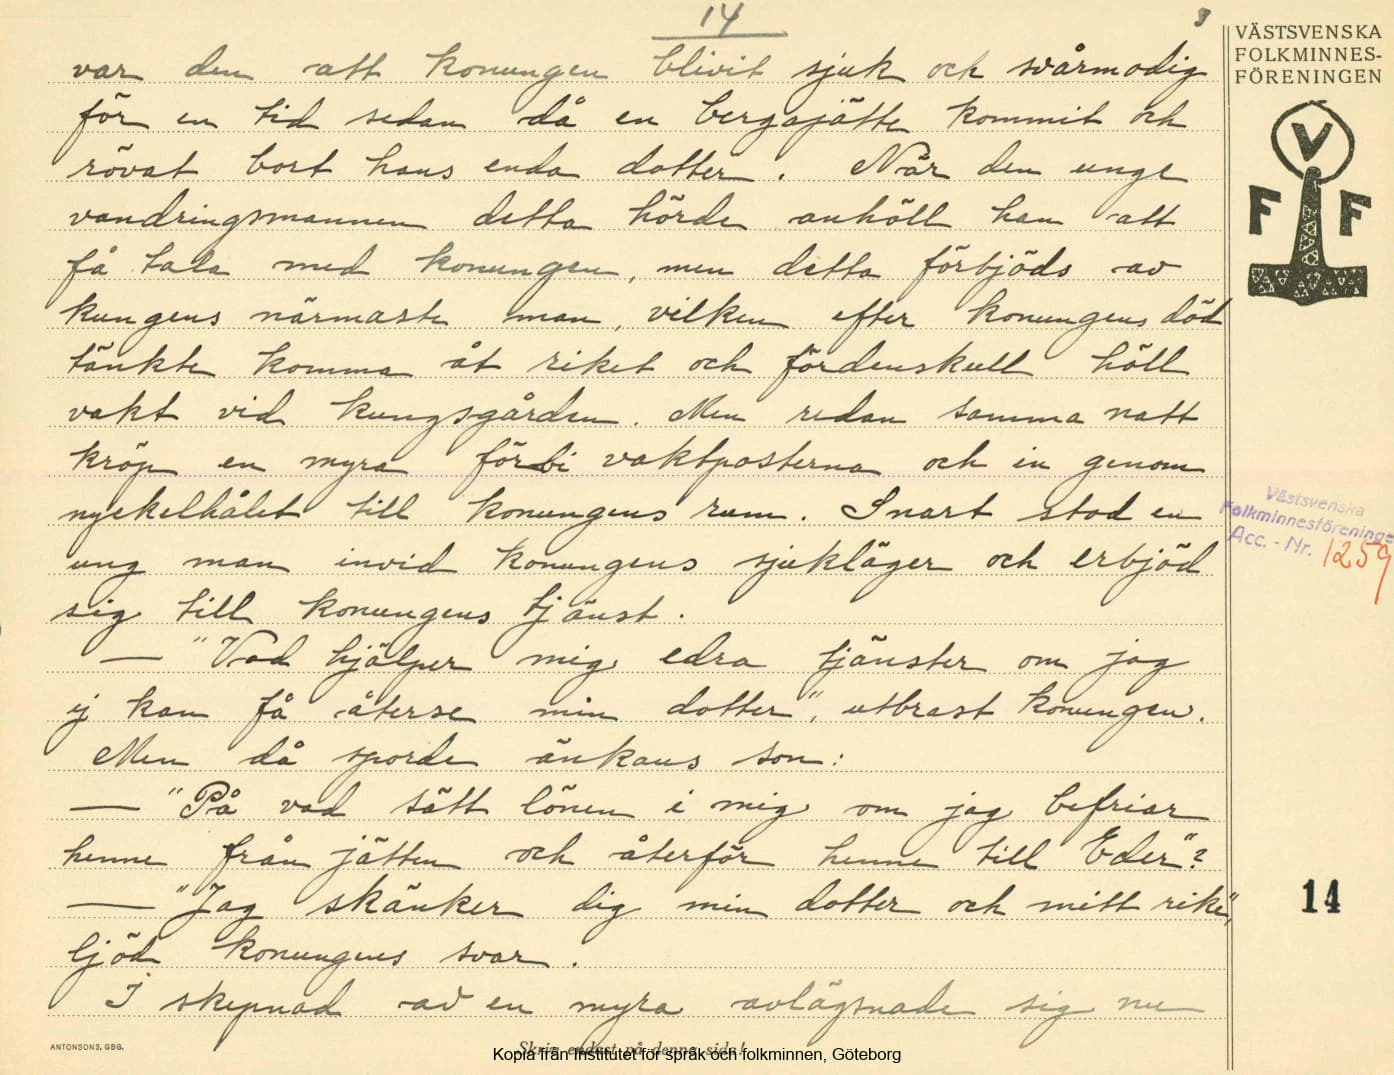 14
8
VÄSTSVENSKA
FOLKMINNES-
FÖRENINGEN
V
F F
var den att konungen blivit sjuk och svårmodig
för en tid sedan då en bergajätte kommit och
rövat bort hans enda dotter. När den unge
vandringsmannen detta hörde anhöll han att
få tala med konungen, men detta förbjöds av
kungens närmaste man, vilken efter konungens död
tänkte komma åt riket och fördenskull höll
vakt vid kungsgården. Men redan samma natt
kröp en myra förbi vaktposterna och in genom
nyckelhålet till konungens rum. Snart stod en
ung man invid konungens sjukläger och erbjöd
sig till konungens tjänst.
— "Vad hjälper mig edra tjänster om jag
ej kan få återse min dotter", utbrast konungen.
Men då sporde änkans son:
— "På vad sätt lönen i mig om jag befriar
henne från jätten och återför henne till Eder"?
— "Jag skänker dig min dotter och mitt rike",
ljöd konungens svar.
I skepnad av en myra avlägsnade sig nu
Västsvenska
Folkminnesföreningen
Acc. - Nr. 1259
14
ANTONSONS, GBG.
Skriv endast på denna sida!
Kopia från Institutet för språk och folkminnen, Göteborg